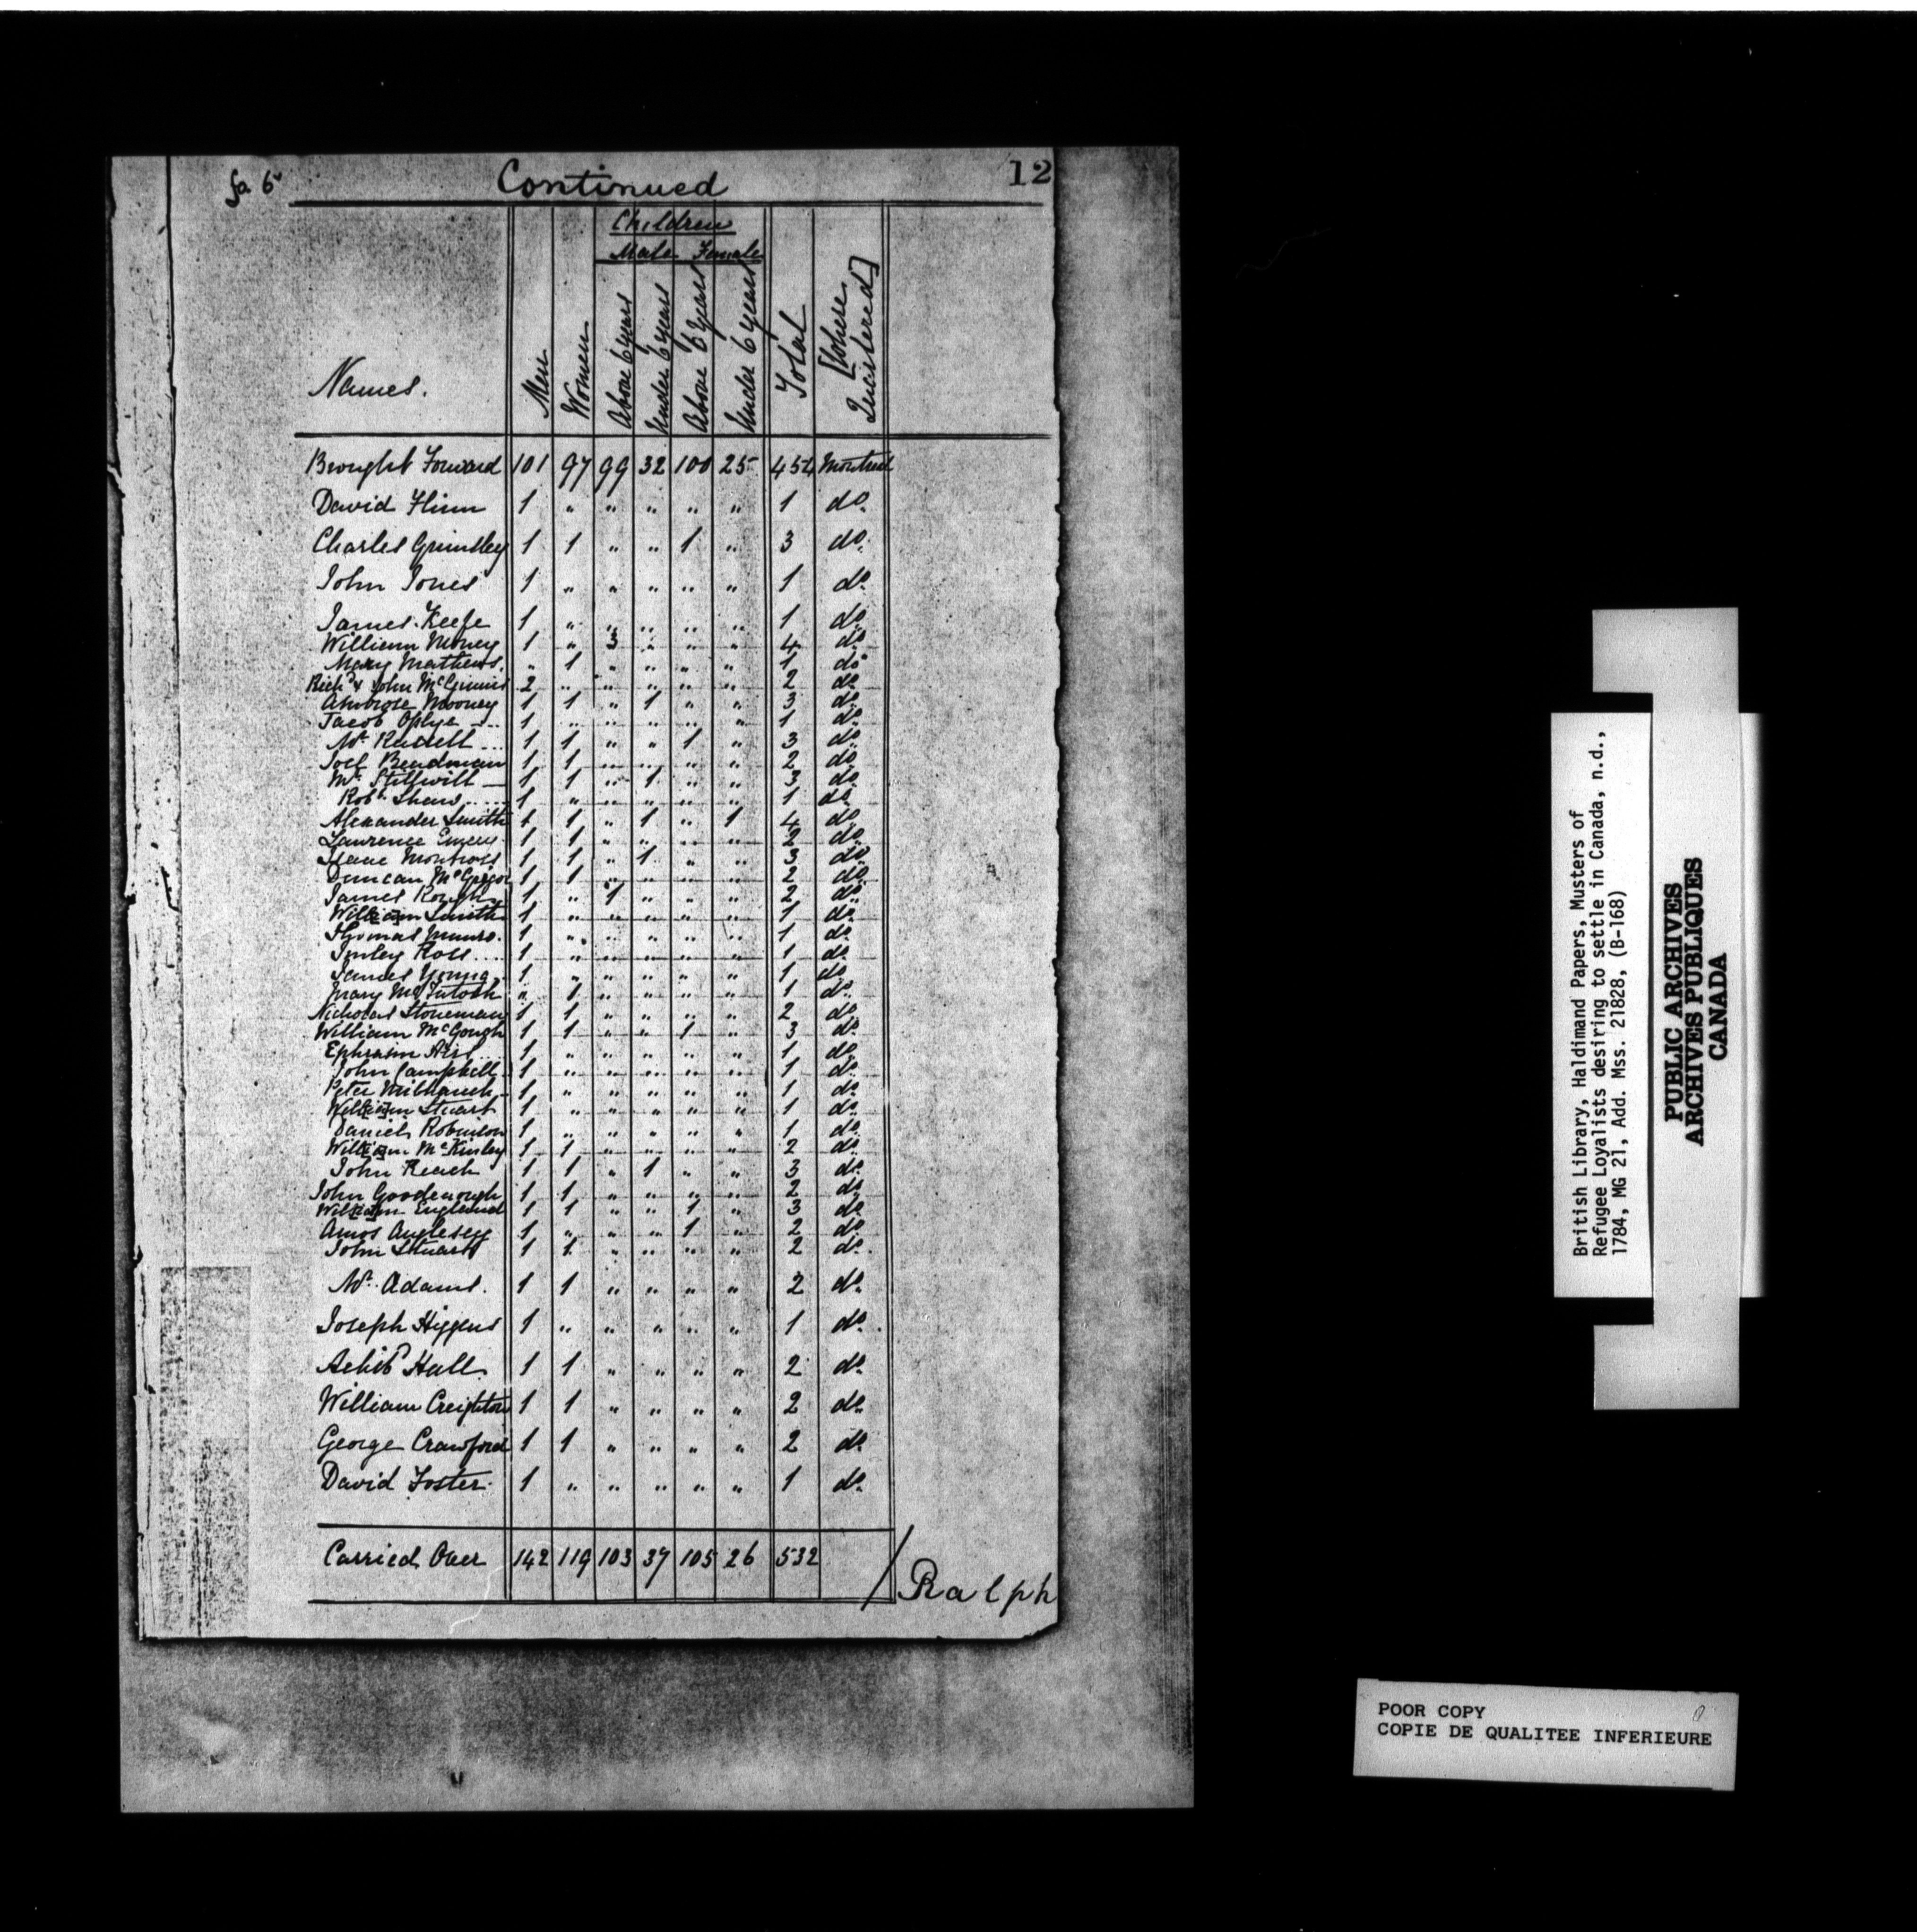 fo. 6v
Continued
12
Children
Male Female
Names. Men Women Above 6 years Under 6 years Above 6 years Under 6 years Total [Where Quartered]
Brought Forward 101 97 99 32 100 25 454 Montreal
David Flinn 1 " " " " " 1 do.
Charles Grimsley 1 1 " " 1 " 3 do.
John Jones 1 " " " " " 1 do.
James Keefe 1 " " " " " 1 do.
William Money 1 " 3 " " " 4 do.
Mary Mathews. " 1 " " " " 1 do.
Richd & John McGinnis 2 " " " " " 2 do.
Ambrose Mooney 1 1 " 1 " " 3 do.
Jacob 1 " " " " " 1 do.
Mr. Russell 1 1 " " 1 " 3 do.
Joel Beadman 1 1 " " " " 2 do.
Mr. Stillwill 1 1 " 1 " " 3 do.
Robt. Shaw 1 " " " " " 1 do.
Alexander Smith 1 1 " 1 " 1 4 do.
Lawrence 1 1 " " " " 2 do.
Isaac Montross 1 1 " 1 " " 3 do.
Duncan McGregor 1 1 " " " " 2 do.
James Rough 1 " 1 " " " 2 do.
Will[ia]m Smith 1 " " " " " 1 do.
Thomas Munro. 1 " " " " " 1 do.
Ross 1 " " " " " 1 do.
James Young 1 " " " " " 1 do.
Mary McIntosh " 1 " " " " 1 do.
Nicholas Stoneman 1 1 " " " " 2 do.
William McGough 1 1 " " 1 " 3 do.
Ephraim 1 " " " " " 1 do.
John Campbell 1 " " " " " 1 do.
Peter 1 " " " " " 1 do.
Will[ia]m Stuart 1 " " " " " 1 do.
Daniel Robinson 1 " " " " " 1 do.
Will[ia]m McKinley 1 1 " " " " 2 do.
John Reach 1 1 " 1 " " 3 do.
John Goodenough 1 1 " " " " 2 do.
Will[ia]m England 1 1 " " 1 " 3 do.
Amos Anglesey 1 " " " 1 " 2 do.
John Stuart 1 1 " " " " 2 do.
Mr. Adams. 1 1 " " " " 2 do.
Joseph Higgens 1 " " " " " 1 do.
Achibd Hall 1 1 " " " " 2 do.
William Creighton 1 1 " " " " 2 do.
George Crawford 1 1 " " " " 2 do.
David Foster 1 " " " " " 1 do.
Carried Over 142 119 103 37 105 26 532
/Ralph
British Library, Haldimand Papers, Musters of
Refugee Loyalists desiring to settle in Canada, n.d.,
1784, MG 21, Add. Mss. 21828, (B-168)
PUBLIC ARCHIVES
ARCHIVES PUBLIQUES
CANADA
POOR COPY
COPIE DE QUALITEE INFERIEURE